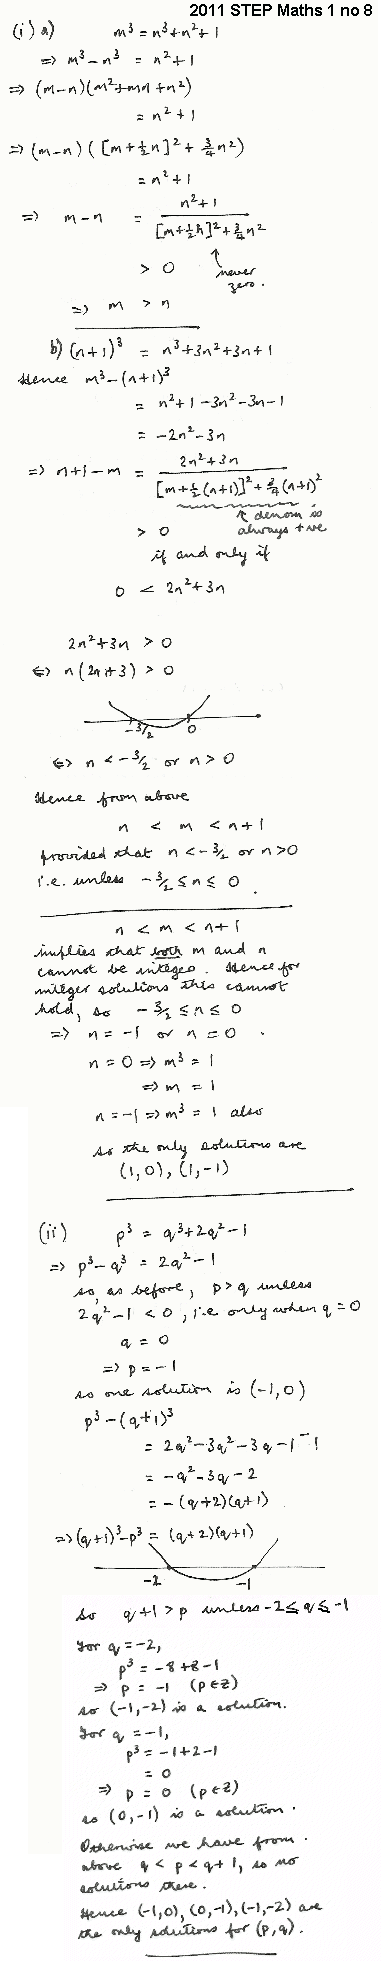 2011 STEP Maths 1 no 8
(i) a) m³ = n³ + n² + 1
=> m³ - n³ = n² + 1
=> (m-n)(m² + mn + n²)
= n² + 1
=> (m-n)([m + ½n]² + ¾n²)
= n² + 1
=> m - n = (n² + 1) / ([m + ½n]² + ¾n²)
↑ never
zero.
> 0
=> m > n
b) (n+1)³ = n³ + 3n² + 3n + 1
Hence m³ - (n+1)³
= n² + 1 - 3n² - 3n - 1
= -2n² - 3n
=> n+1-m = (2n² + 3n) / ([m + ½(n+1)]² + ¾(n+1)²)
↑ denom is
always +ve
> 0
if and only if
0 < 2n² + 3n
2n² + 3n > 0
<=> n(2n+3) > 0
-3/2 0
<=> n < -3/2 or n > 0
Hence from above
n < m < n+1
provided that n < -3/2 or n > 0
i.e. unless -3/2 ≤ n ≤ 0.
n < m < n+1
implies that both m and n
cannot be integers. Hence for
integer solutions this cannot
hold, so -3/2 ≤ n ≤ 0
=> n = -1 or n = 0.
n = 0 => m³ = 1
=> m = 1
n = -1 => m³ = 1 also
so the only solutions are
(1,0), (1,-1)
(ii) p³ = q³ + 2q² - 1
=> p³ - q³ = 2q² - 1
so, as before, p > q unless
2q² - 1 < 0, i.e. only when q = 0
q = 0
=> p = -1
so one solution is (-1,0)
p³ - (q+1)³
= 2q² - 3q² - 3q - 1 - 1
= -q² - 3q - 2
= -(q+2)(q+1)
=> (q+1)³ - p³ = (q+2)(q+1)
-2 -1
so q+1 > p unless -2 ≤ q ≤ -1
For q = -2,
p³ = -8 + 8 - 1
=> p = -1 (p∈Z)
so (-1,-2) is a solution.
For q = -1,
p³ = -1 + 2 - 1
= 0
=> p = 0 (p∈Z)
so (0,-1) is a solution.
Otherwise we have from
above q < p < q+1, so no
solutions there.
Hence (-1,0), (0,-1), (-1,-2) are
the only solutions for (p,q).